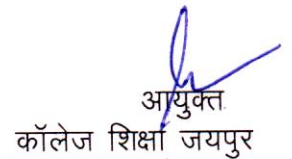 आयुक्त
कॉलेज शिक्षा जयपुर